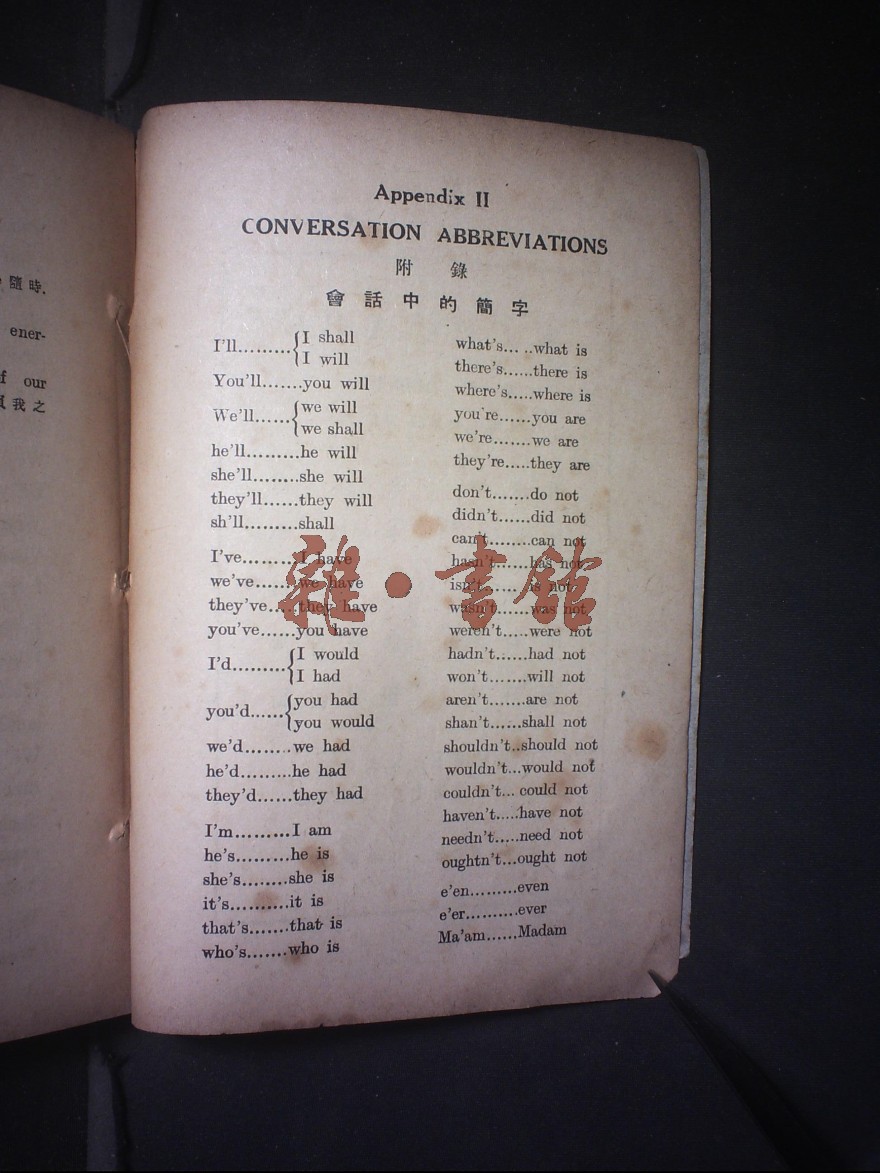 隨時.
ener-
our
我之
Appendix II
CONVERSATION ABBREVIATIONS
附 錄
會 話 中 的 簡 字
I'll.........{I shall
I will
You'll.......you will
We'll......{we will
we shall
he'll.........he will
she'll........she will
they'll......they will
sh'll.........shall
I've.........I have
we've.......we have
they've....they have
you've......you have
I'd.........{I would
I had
you'd......{you had
you would
we'd........we had
he'd.........he had
they'd......they had
I'm.........I am
he's.........he is
she's........she is
it's..........it is
that's.......that is
who's.......who is
what's... ..what is
there's......there is
where's.....where is
you're......you are
we're.......we are
they're.....they are
don't.......do not
didn't......did not
can't........can not
hasn't......has not
isn't...... is not
wasn't......was not
weren't.....were not
hadn't......had not
won't.......will not
aren't.......are not
shan't......shall not
shouldn't..should not
wouldn't...would not
couldn't... could not
haven't.....have not
needn't.....need not
oughtn't...ought not
e'en.........even
e'er..........ever
Ma'am......Madam
雜·書館